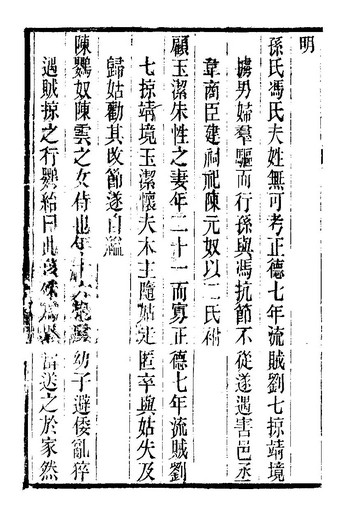 明
孫氏馮氏夫姓無可考正德七年流賊劉七掠靖境
擄男婦羣驅而行孫與馮抗節不從遂遇害邑丞
韋商臣建祠祀陳元奴以二氏祔
顧玉潔朱性之妻年二十一而寡正德七年流賊劉
七掠靖境玉潔懷夫木主隨姑走匿卒與姑失及
歸姑勸其改節遂自縊
陳鸚奴陳雲之女侍也年十六幼子避倭亂猝
遇賊掠之行鸚紿曰此當送之於家然